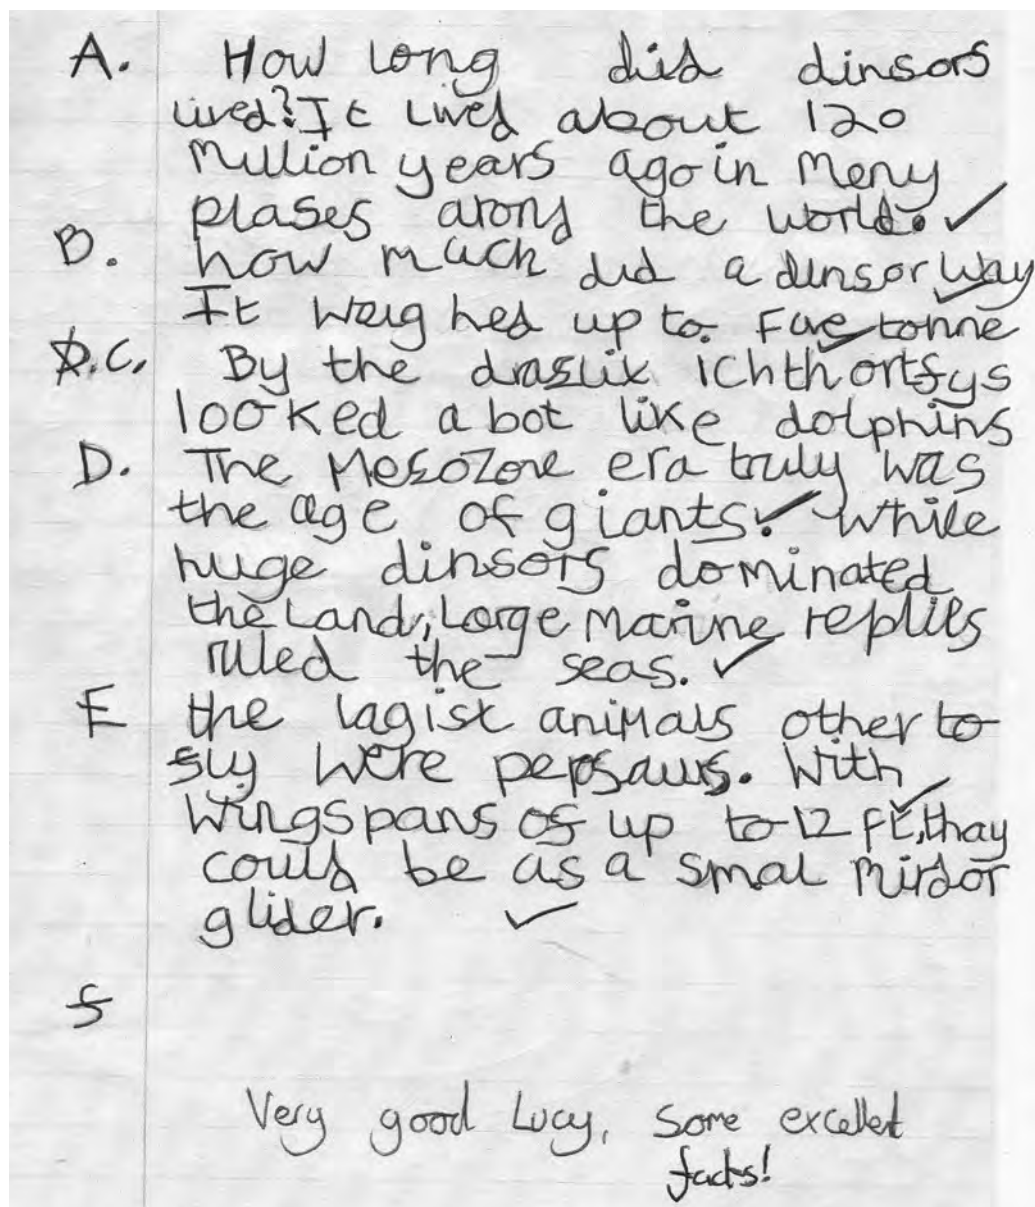 A. How long did dinsors
lived? It lived about 120
Million years ago in meny
plases arond the world. ✓
B. how much did a dinsor way
It weighed up to five tonne
C. By the drasuix ichthortsys
looked a bot like dolphins
D. The Mesozore era truly was
the age of giants. ✓ While
huge dinsors dominated
the Land, Large marine replies
ruled the seas. ✓
E the lagist animals other to
sly were pepsaurs. With
Wingspans of up to 12 ft, thay
could be as a smal mirdor
glider. ✓
F
Very good Lucy, some excellent
facts!